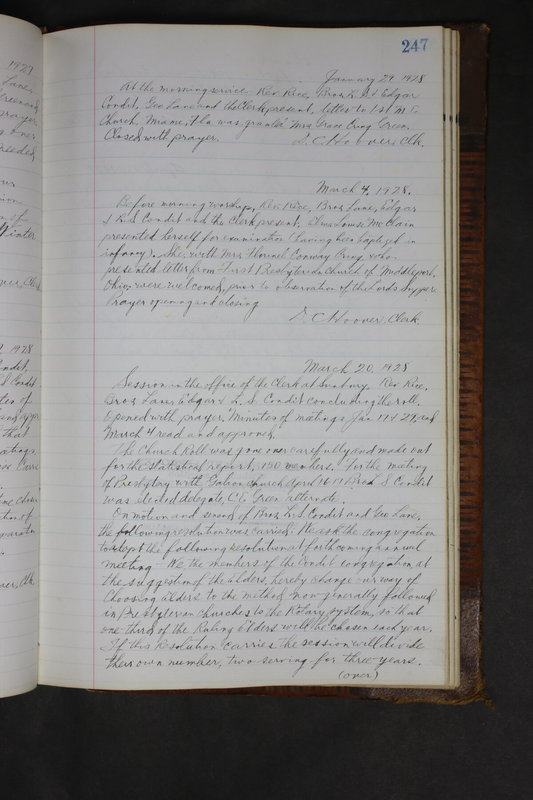 247
January 29, 1928
At the morning service Rev Rice, Bros L. S. & Edgar
Condit, Geo Lane and the Clerk, present, letter to 1st M. E.
Church, Miami, Fla. was granted Mrs Grace Crug Green.
Closed with prayer. S. C. Hoover, Clk.
March 4, 1928.
Before morning worship, Rev. Rice, Bros. Lane, Edgar
& L. S. Condit and the Clerk present. Louise McClain
presented herself for examination (having been baptized in
infancy). She, with Mrs Conway Crug, who
presented letter from First Presbyterian Church of Middleport,
Ohio, were welcomed, prior to observation of the Lords Supper.
Prayer opening and closing
S. C. Hoover, Clerk.
March 20, 1928
Session in the office of the Clerk at Sunbury. Rev Rice,
Bros. Lane, Edgar & L. S. Condit concluding the roll.
Opened with prayer. Minutes of meetings Jan 1st & 29, and
March 4 read and approved.
The Church Roll was gone over carefully and made out
for the statistical report, 150 members. For the meeting
of Presbytery with Galion church April 16-17 S Condit
was elected delegate, C. E. Green alternate.
On motion and second of Bros. L. S. Condit and Geo Lane,
the following resolution was carried: We ask the congregation
to adopt the following resolution at forthcoming annual
meeting - We, the members of the Condit congregation at
the suggestion of the Elders, hereby change our way of
choosing Elders to the method now generally followed
in Presbyterian Churches to the Rotary system, so that
one third of the Ruling Elders will be chosen each year.
If this Resolution carries the session will divide
their own number, two serving for three years.
(over)